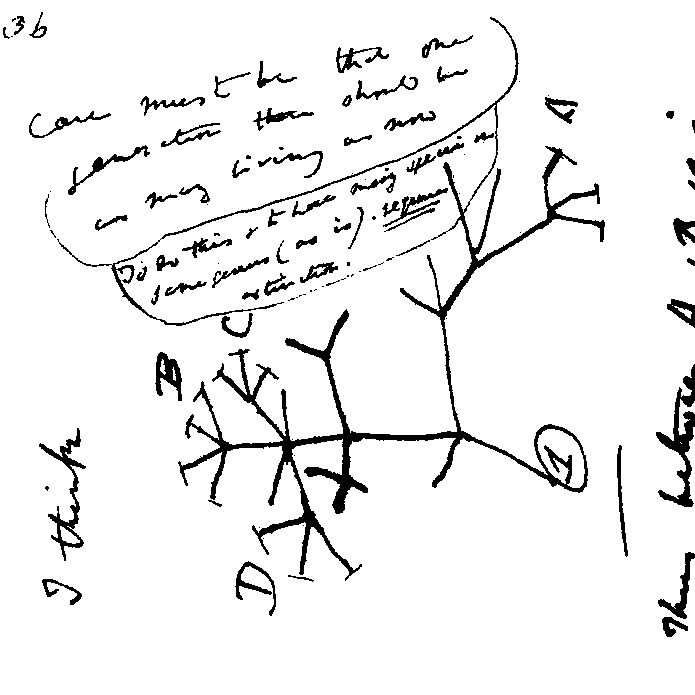 36
I think
Case must be that one
generation then should be
as many living as now
To do this & to have many species in
same genus (as is). requires
extinction.
A
B
C
D
1
Thus between A. B.